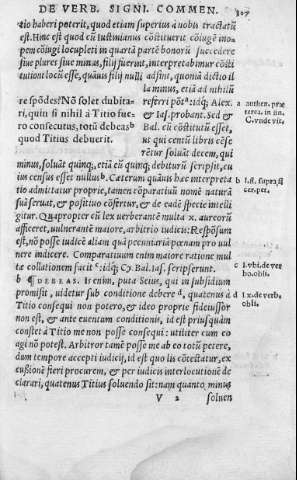 DE VERB. SIGNI. COMMEN. 307
tio haberi poterit, quod etiam superius à nobis tractatũ
est. Hinc est quòd cũ Iustinianus cõstituerit cõiugẽ ino-
pem cõiugi locupleti in quarta parte bonorũ succedere
siue plures siue minus, filij fuerint, interpretabimur cõsti
tutioni locũ esse, quãuis filij nulli adsint, quonia dictio il
la minus, etiã ad nihilũ
re spõdes? Nõ solet dubita-
referri põt a: idq́; Alex.
ri, quin si nihil à Titio fue
& Ias. probant. Sed &
ro consecutus, totũ debeas b
Bal. cũ cõstitutũ esset,
quod Titius debuerit.
ut qui centũ libris cẽse
retur soluat decem, qui
minus, soluat quinq;, etiã eũ quinq; debiturũ scripsit, cu
ius census esset nullus b. Cæterùm quanuis hæc interpreta
tio admittatur proprie, tamen cõparatiuũ nomẽ naturã
suã seruat, & positiuo cõfertur, & de eadẽ specie intelli
gitur. Quapropter cũ lex uerberantẽ multa x. aureorũ
afficeret, uulnerantẽ maiore, arbitrio iudicis: Respõsum
est, nõ posse iudicẽ aliam quã pecuniaria pœnam pro uul
nere indicere. Comparatiuum enim maiore ratione mul
tæ collationem facit c: idq́; & Bal. Ias. scripserunt.
b ¶ DEBEAS. Ir enim, puta Seius, qui in subsidium
promisit, uidetur sub conditione debere d, quatenus à
Titio consequi non potero, & ideo proprie fideiussor
non est, & ante euentum conditionis, id est priusquàm
constet à Titio me non posse consequi: utiliter cum eo
agi nõ potest. Arbitror tamẽ posse me ab eo totũ petere,
dum tempore accepti iudicij, id est quo lis cõtestatur, ex
cussione fieri procurem, & per iudicis interlocutionẽ de
clarari, quatenus Titius soluendo sit: nam quanto minus
V 2 soluen
a authen. præ
terea. in fin.
C. unde vir.
b
c l. ubi. de ver
bo. obli.
d
obli.